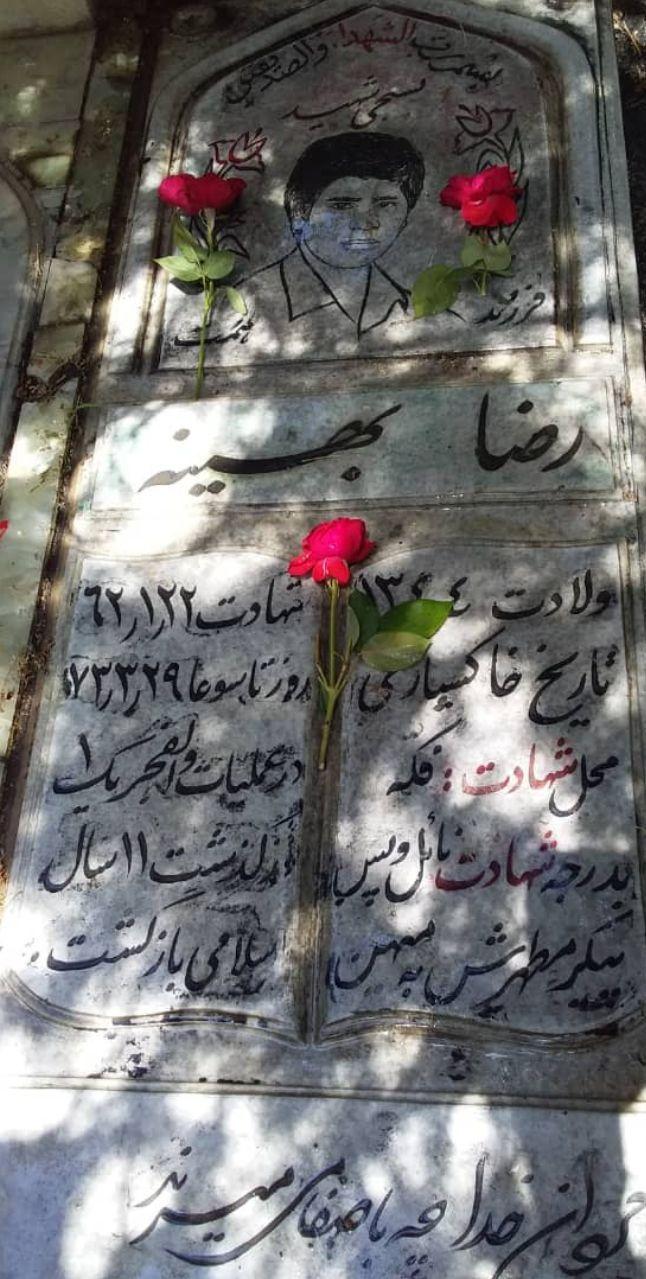 بسم رب الشهداء والصدیقین
بسیجی شهید
فرزند همت
رضا بهینه
ولادت ۱۳۴۴ شهادت ۶۲٫۱٫۲۲
تاریخ خاکسپاری روز تاسوعا ۷۳٫۳٫۲۹
محل شهادت: فکه در عملیات والفجر یک ۱
بدرجه شهادت نائل و پس از گذشت ۱۱ سال
پیکر مطهرش به میهن اسلامی بازگشت.
مردان خدا چه باصفا می میرند